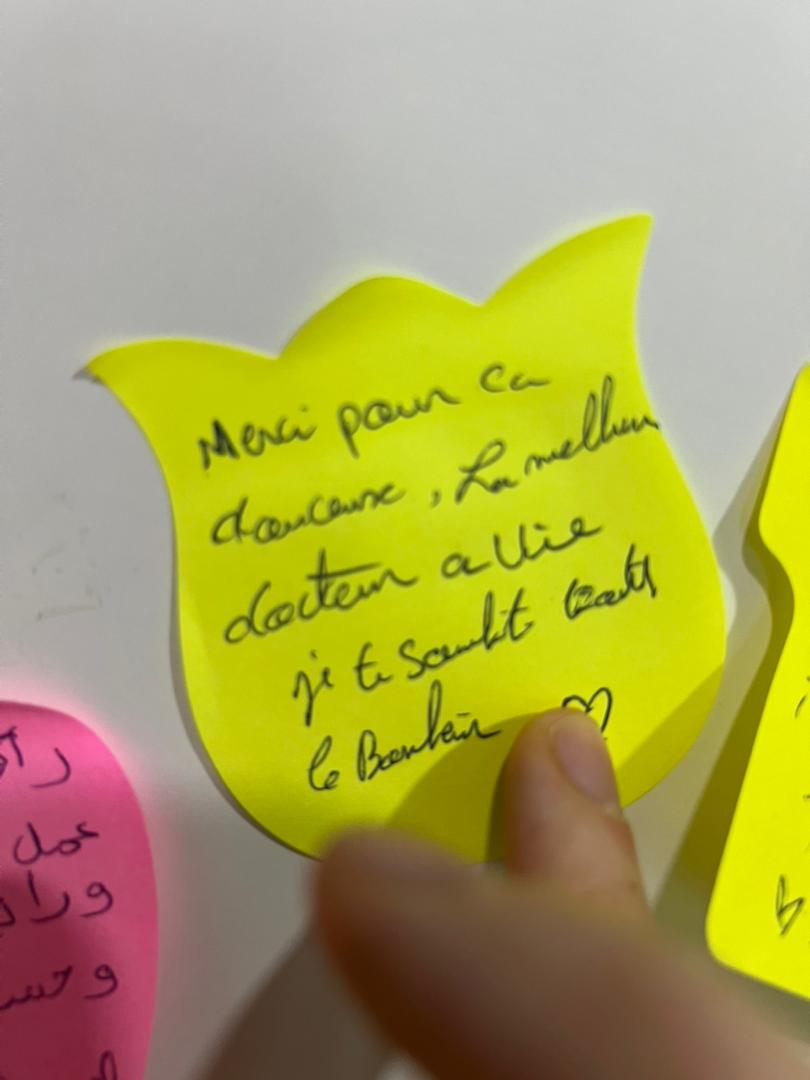 Merci pour ca
douceure, La melheur
docteur a Vie
je te souhit touts
le Bonheur
عمل